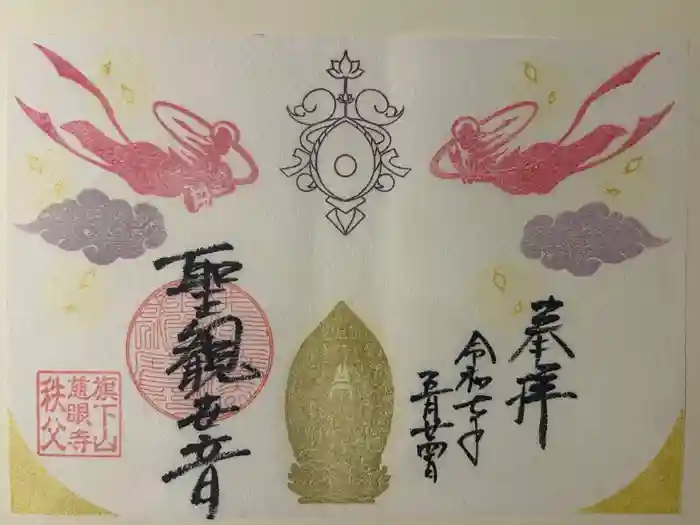 奉拝
令和七年
五月廿四日
聖観世音
旗下山
慈眼寺
秩父